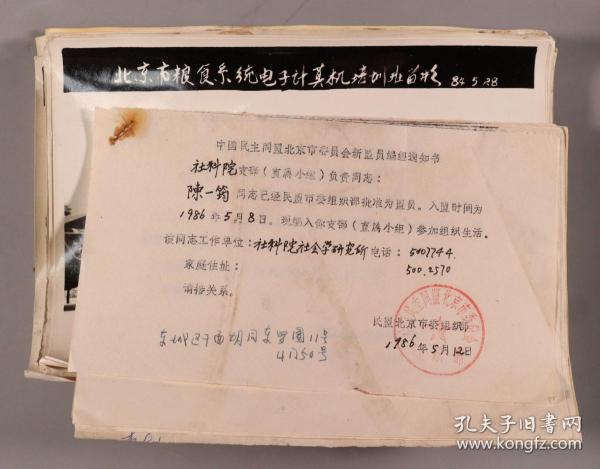 北京市粮食系统电子计算机培训班留影 84.5.28
中国民主同盟北京市委员会新盟员编组通知书
社科院支部（直属小组）负责同志：
陳一筠同志已经民盟市委组织部批准为盟员。入盟时间为
1986年5月8日。现编入你支部（直属小组）参加组织生活。
该同志工作单位：社科院社会学研究所 电话：5007744
家庭住址： 500.2570
请接关系。
民盟北京市委组织部
1986年5月12日
东城区干面胡同东罗圈11号
4门50号
孔夫子旧书网
www.kongfz.com